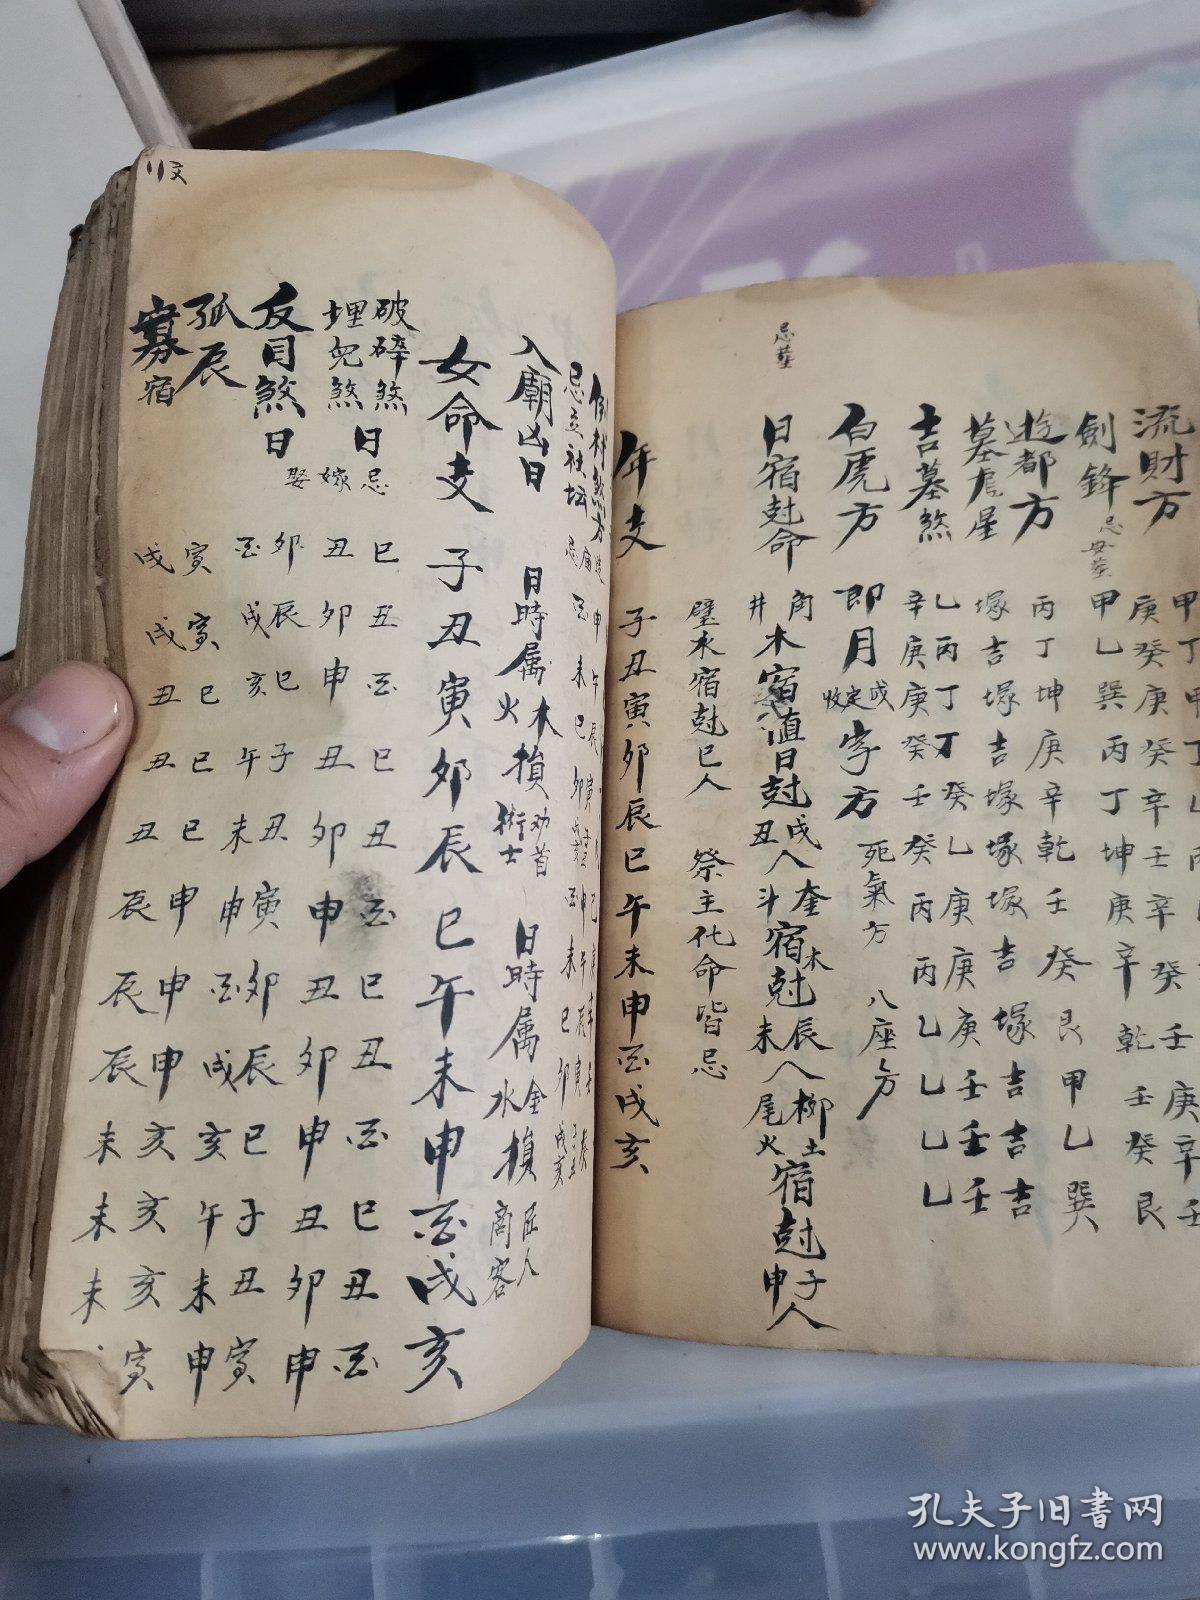 流財方
甲丁甲丁
庚癸庚癸辛壬辛癸壬庚辛壬
劍鋒 忌安葬 甲乙巽丙丁坤庚辛乾壬癸艮
遊都方 丙丁坤庚辛乾壬癸艮甲乙巽
墓庫星 塚吉塚吉塚塚塚吉塚吉吉吉
吉墓煞
乙丙丁丁癸乙庚庚庚壬壬壬
辛庚庚癸壬癸丙丙乙乙乙乙
白虎方 即月收定成字方 死氣方 八座方
忌葬
日宿尅命 角井木宿值日尅戌丑人 奎木斗宿尅辰未人 柳土尾火宿尅子申人
壁水宿尅巳人 祭主化命皆忌
年支 子丑寅卯辰巳午未申酉戌亥
忌立社坛
入廟凶日 日時属木火損劝首術士 日時属金水損匠人商客
女命支 子丑寅卯辰巳午未申酉戌亥
破碎煞日 巳丑酉巳丑酉巳丑酉巳丑酉
埋兒煞 丑卯申丑卯申丑卯申丑卯申
忌嫁娶
反目煞日
卯辰巳子丑寅卯辰巳子丑寅
酉戌亥午未申酉戌亥午未申
孤辰 寅寅巳巳巳申申申亥亥亥寅
寡宿 戌戌丑丑丑辰辰辰未未未
孔夫子旧書网
www.kongfz.com